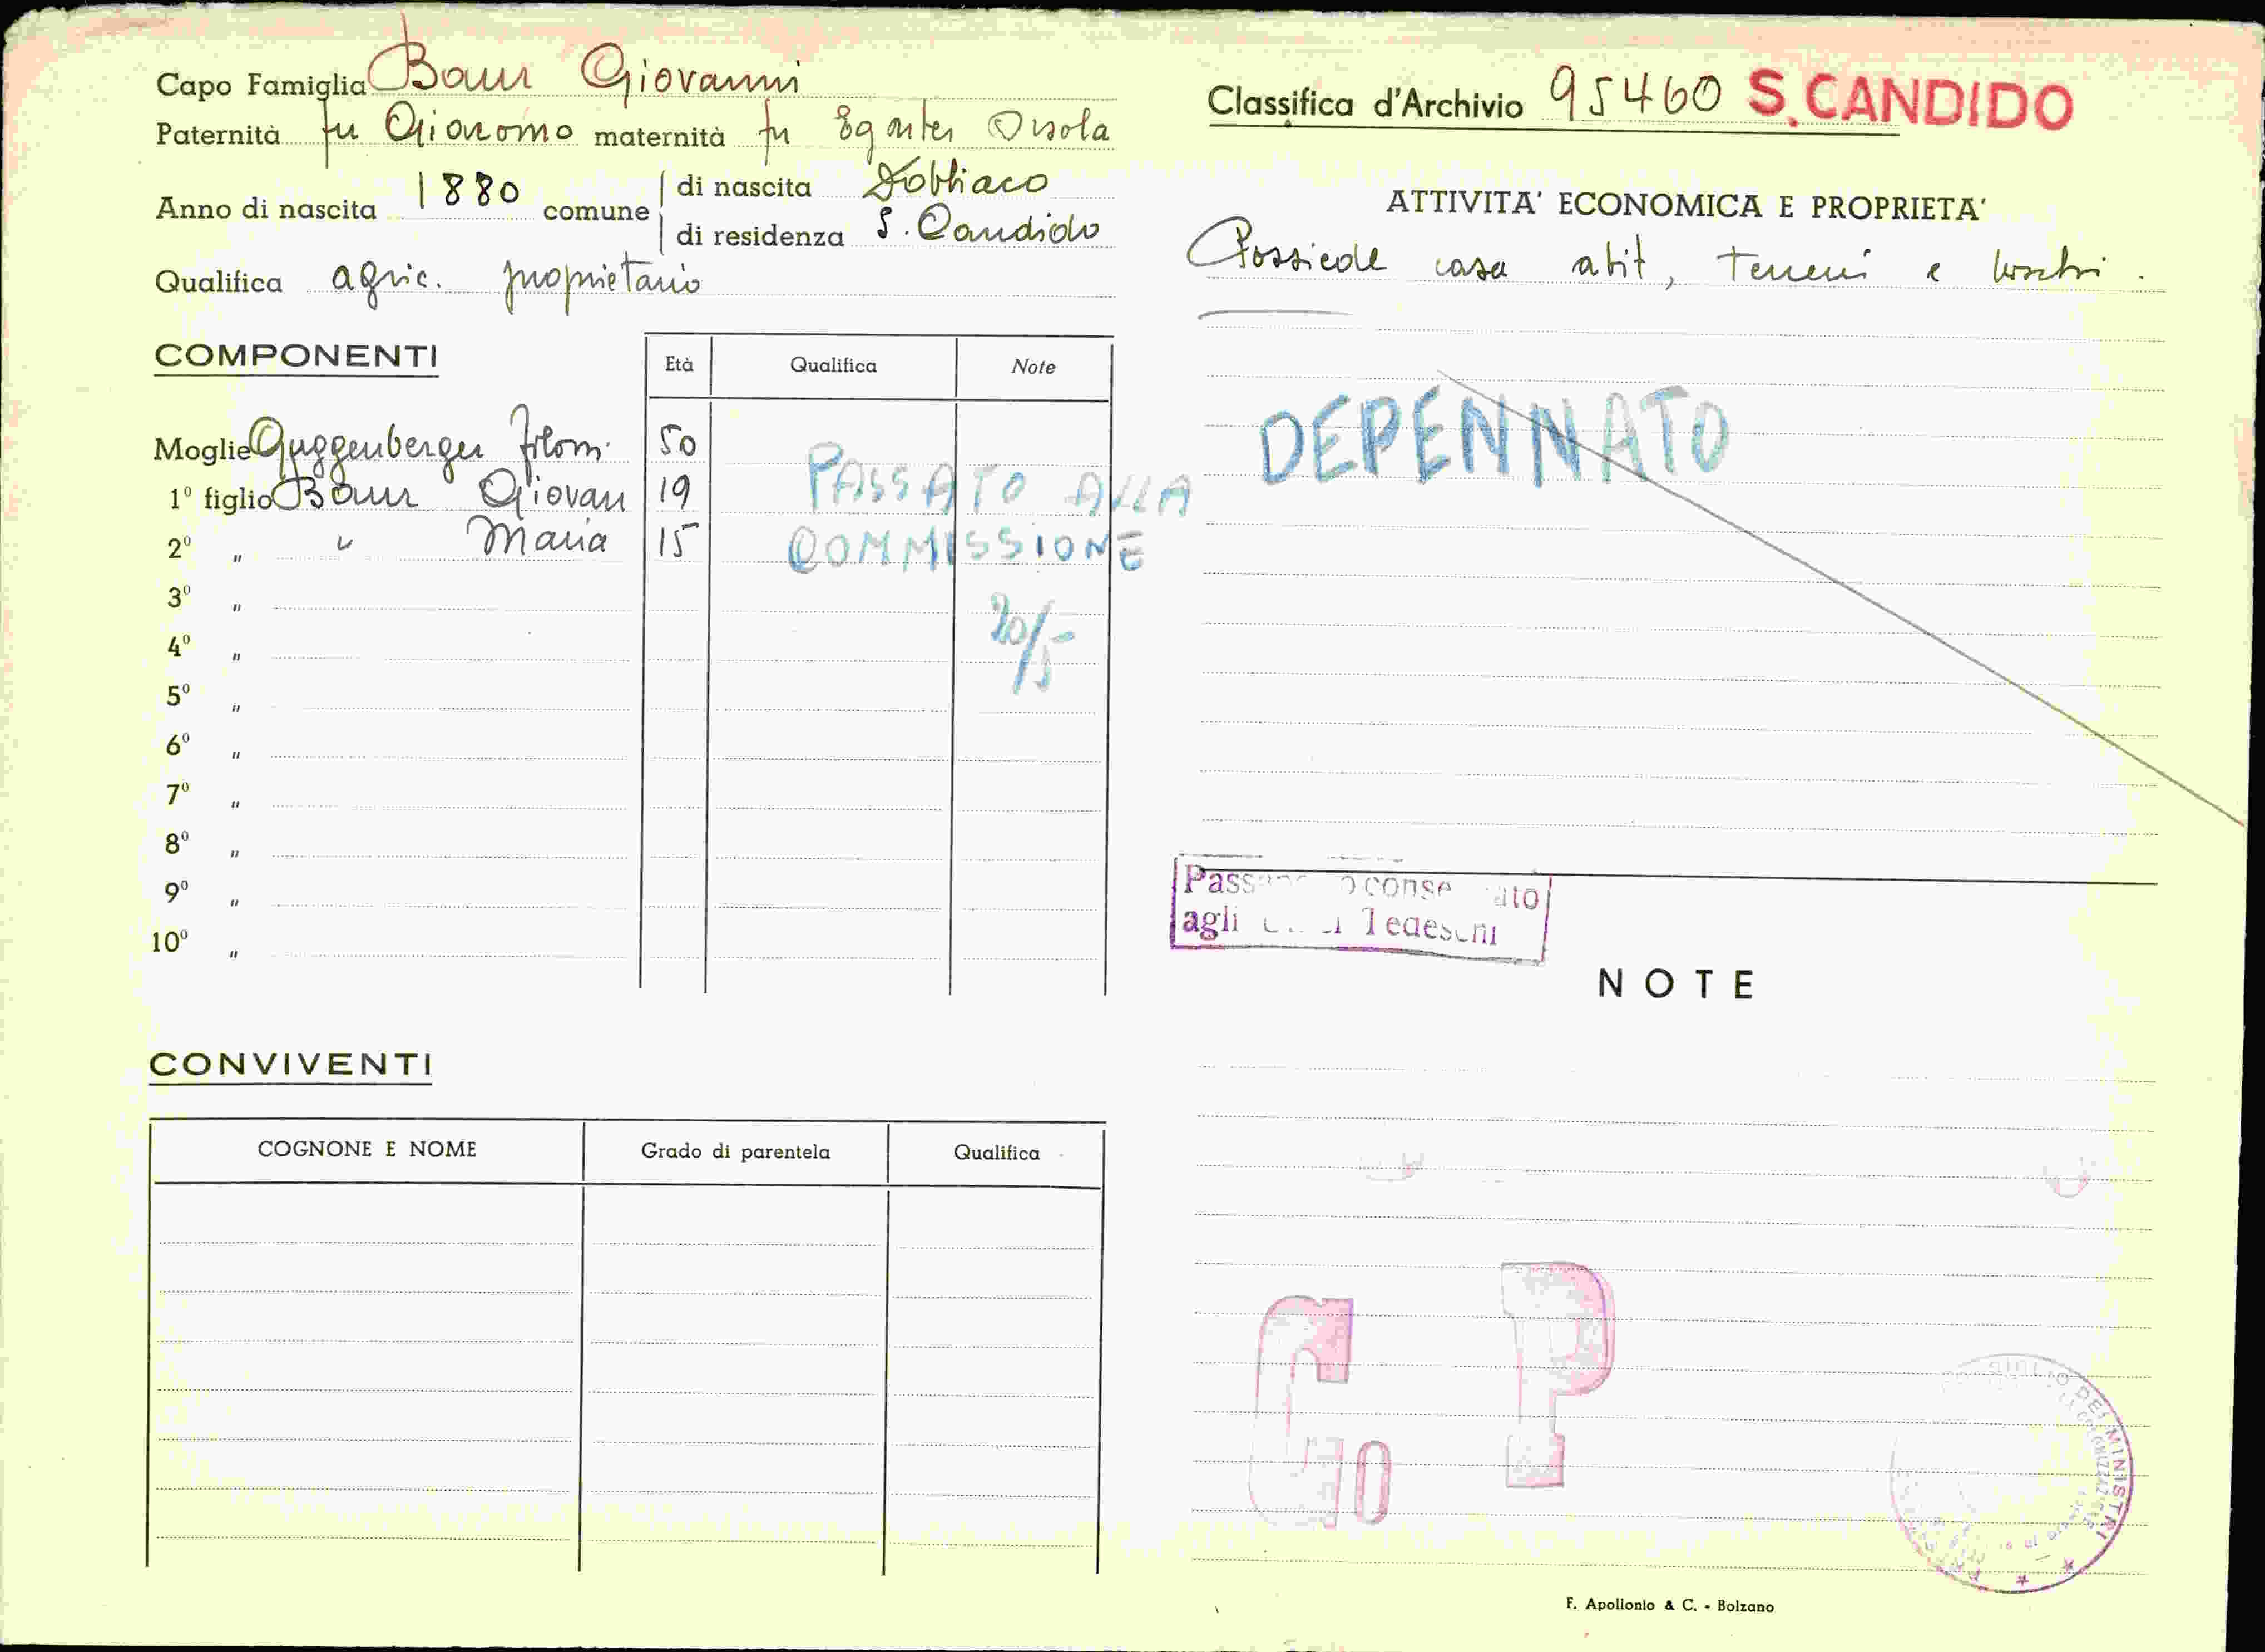 Capo Famiglia Baur Giovanni
Paternità fu Giacomo maternità fu Eganter Orsola
Anno di nascita 1880 comune di nascita Dobbiaco
di residenza S. Candido
Qualifica agric. proprietario
COMPONENTI
Età Qualifica Note
Moglie Guggenberger Filom. 50
1º figlio Baur Giovan 19
2º " " Maria 15
PASSATO ALLA
COMMISSIONE
20/5
3º "
4º "
5º "
6º "
7º "
8º "
9º "
10º "
CONVIVENTI
COGNONE E NOME Grado di parentela Qualifica
Classifica d'Archivio 95460 S. CANDIDO
ATTIVITA' ECONOMICA E PROPRIETA'
Possiede casa abit, terreni e boschi.
DEPENNATO
agli Tedeschi
NOTE
P
10
DEI MINISTRI
F. Apollonio & C. - Bolzano